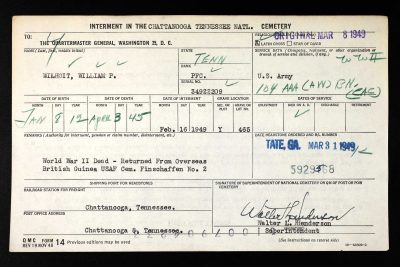 INTERMENT IN THE CHATTANOOGA TENNESSEE NATL. CEMETERY
ORIGINAL MAR 8 1949
TO THE QUARTERMASTER GENERAL, WASHINGTON 25, D. C.
LATIN CROSS
STAR OF DAVID
NAME (Last, first, middle initial)
STATE
TENN
RANK
WILHOIT, WILLIAM P.
PFC.
34922209
WW II
U.S. Army
104 AAA (AW) BN.
(CAC)
DATE OF BIRTH
DATE OF DEATH
DATE OF INTERMENT
GRAVE LOCATION
DATES OF SERVICE
MONTH
DAY
YEAR
MONTH
DAY
YEAR
MONTH
DAY
YEAR
PLOT
GRAVE NO.
Jan 8 12 April 3 45
Feb. 16 1949
Y
465
World War II Dead - Returned From Overseas
British Guinea USAF Cem. Finschaffen No. 2
TATE, GA. MAR 31 1949
SHIPPING POINT FOR HEADSTONE
RAILROAD STATION FOR FREIGHT
Chattanooga, Tennessee.
POST OFFICE ADDRESS
Chattanooga 4, Tennessee.
SIGNATURE OF SUPERINTENDENT OF NATIONAL CEMETERY OR QM OF POST OR POW CEMETERY
Walter L. Henderson
Walter L. Henderson
Superintendent
QMC FORM 14 Previous editions may be used
REV 19 NOV 46
(See Instructions on reverse side)